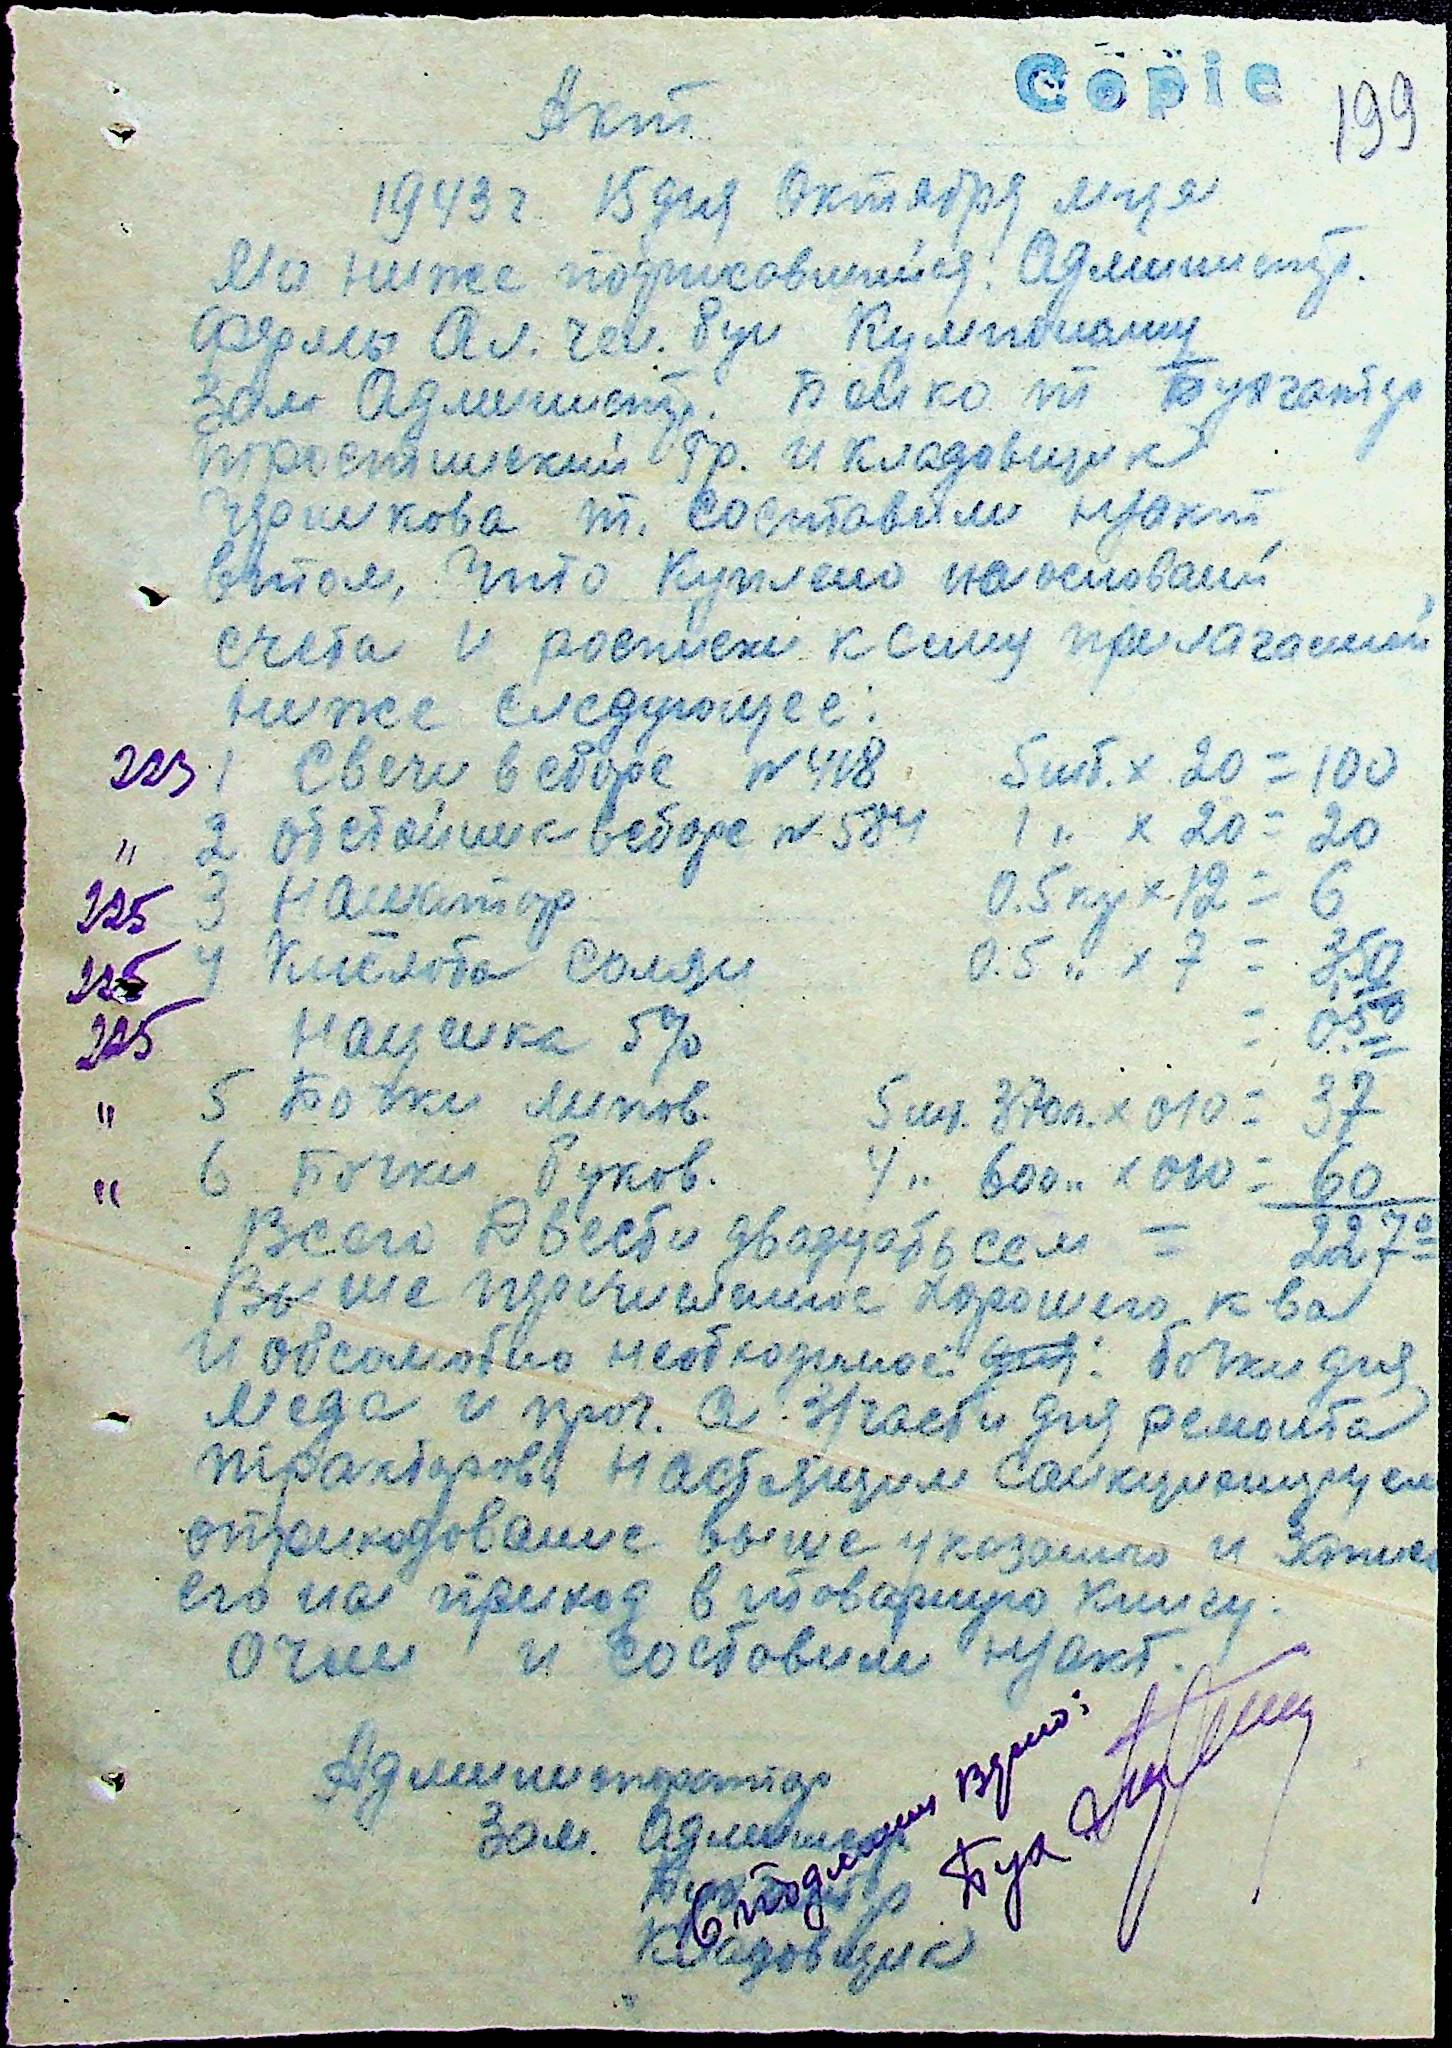 Copie
199
Акт
1943 г. 15 дня Октября м-ця
Мы ниже подписавшийся: Администр.
Фермы Ал. чел.
Зам Администр. Бойко т Бухгалтер
Гр. и кладовщик
т. составили н/акт
в том, что Куплено на основани
счета и росписки к сему прилагаемой
ниже следующее:
223 1 Свечи в сборе № 418 5 шт. х 20 = 100
" 2 отстойник в сборе № 584 1 " х 20 = 20
225 3 Нашатыр 0.5 кг х 12 = 6
225 4 Кислота соляи 0.5 " х 7 = 3,50
225 Наценка 5% = 0.50
" 5 Бочки липов. 5 шт. 370 л. х 010 = 37
" 6 Бочки буков. 4 " 600 " х 010 = 60
Всего Двести двадцать сем = 227 00
Выше перечисленное хорошего к-ва
и обсолютно необходимое для: бочки для
меда и проч. а З/части для ремонта
тракторов. Настоящим санкционируем
оприходование выше указаного и запись
его на приход в товарную книгу.
О чем и составили н/акт.
Администратор
Зам. Админист
Бухгалтер
Кладовщик
С подлиным верно:
Бух